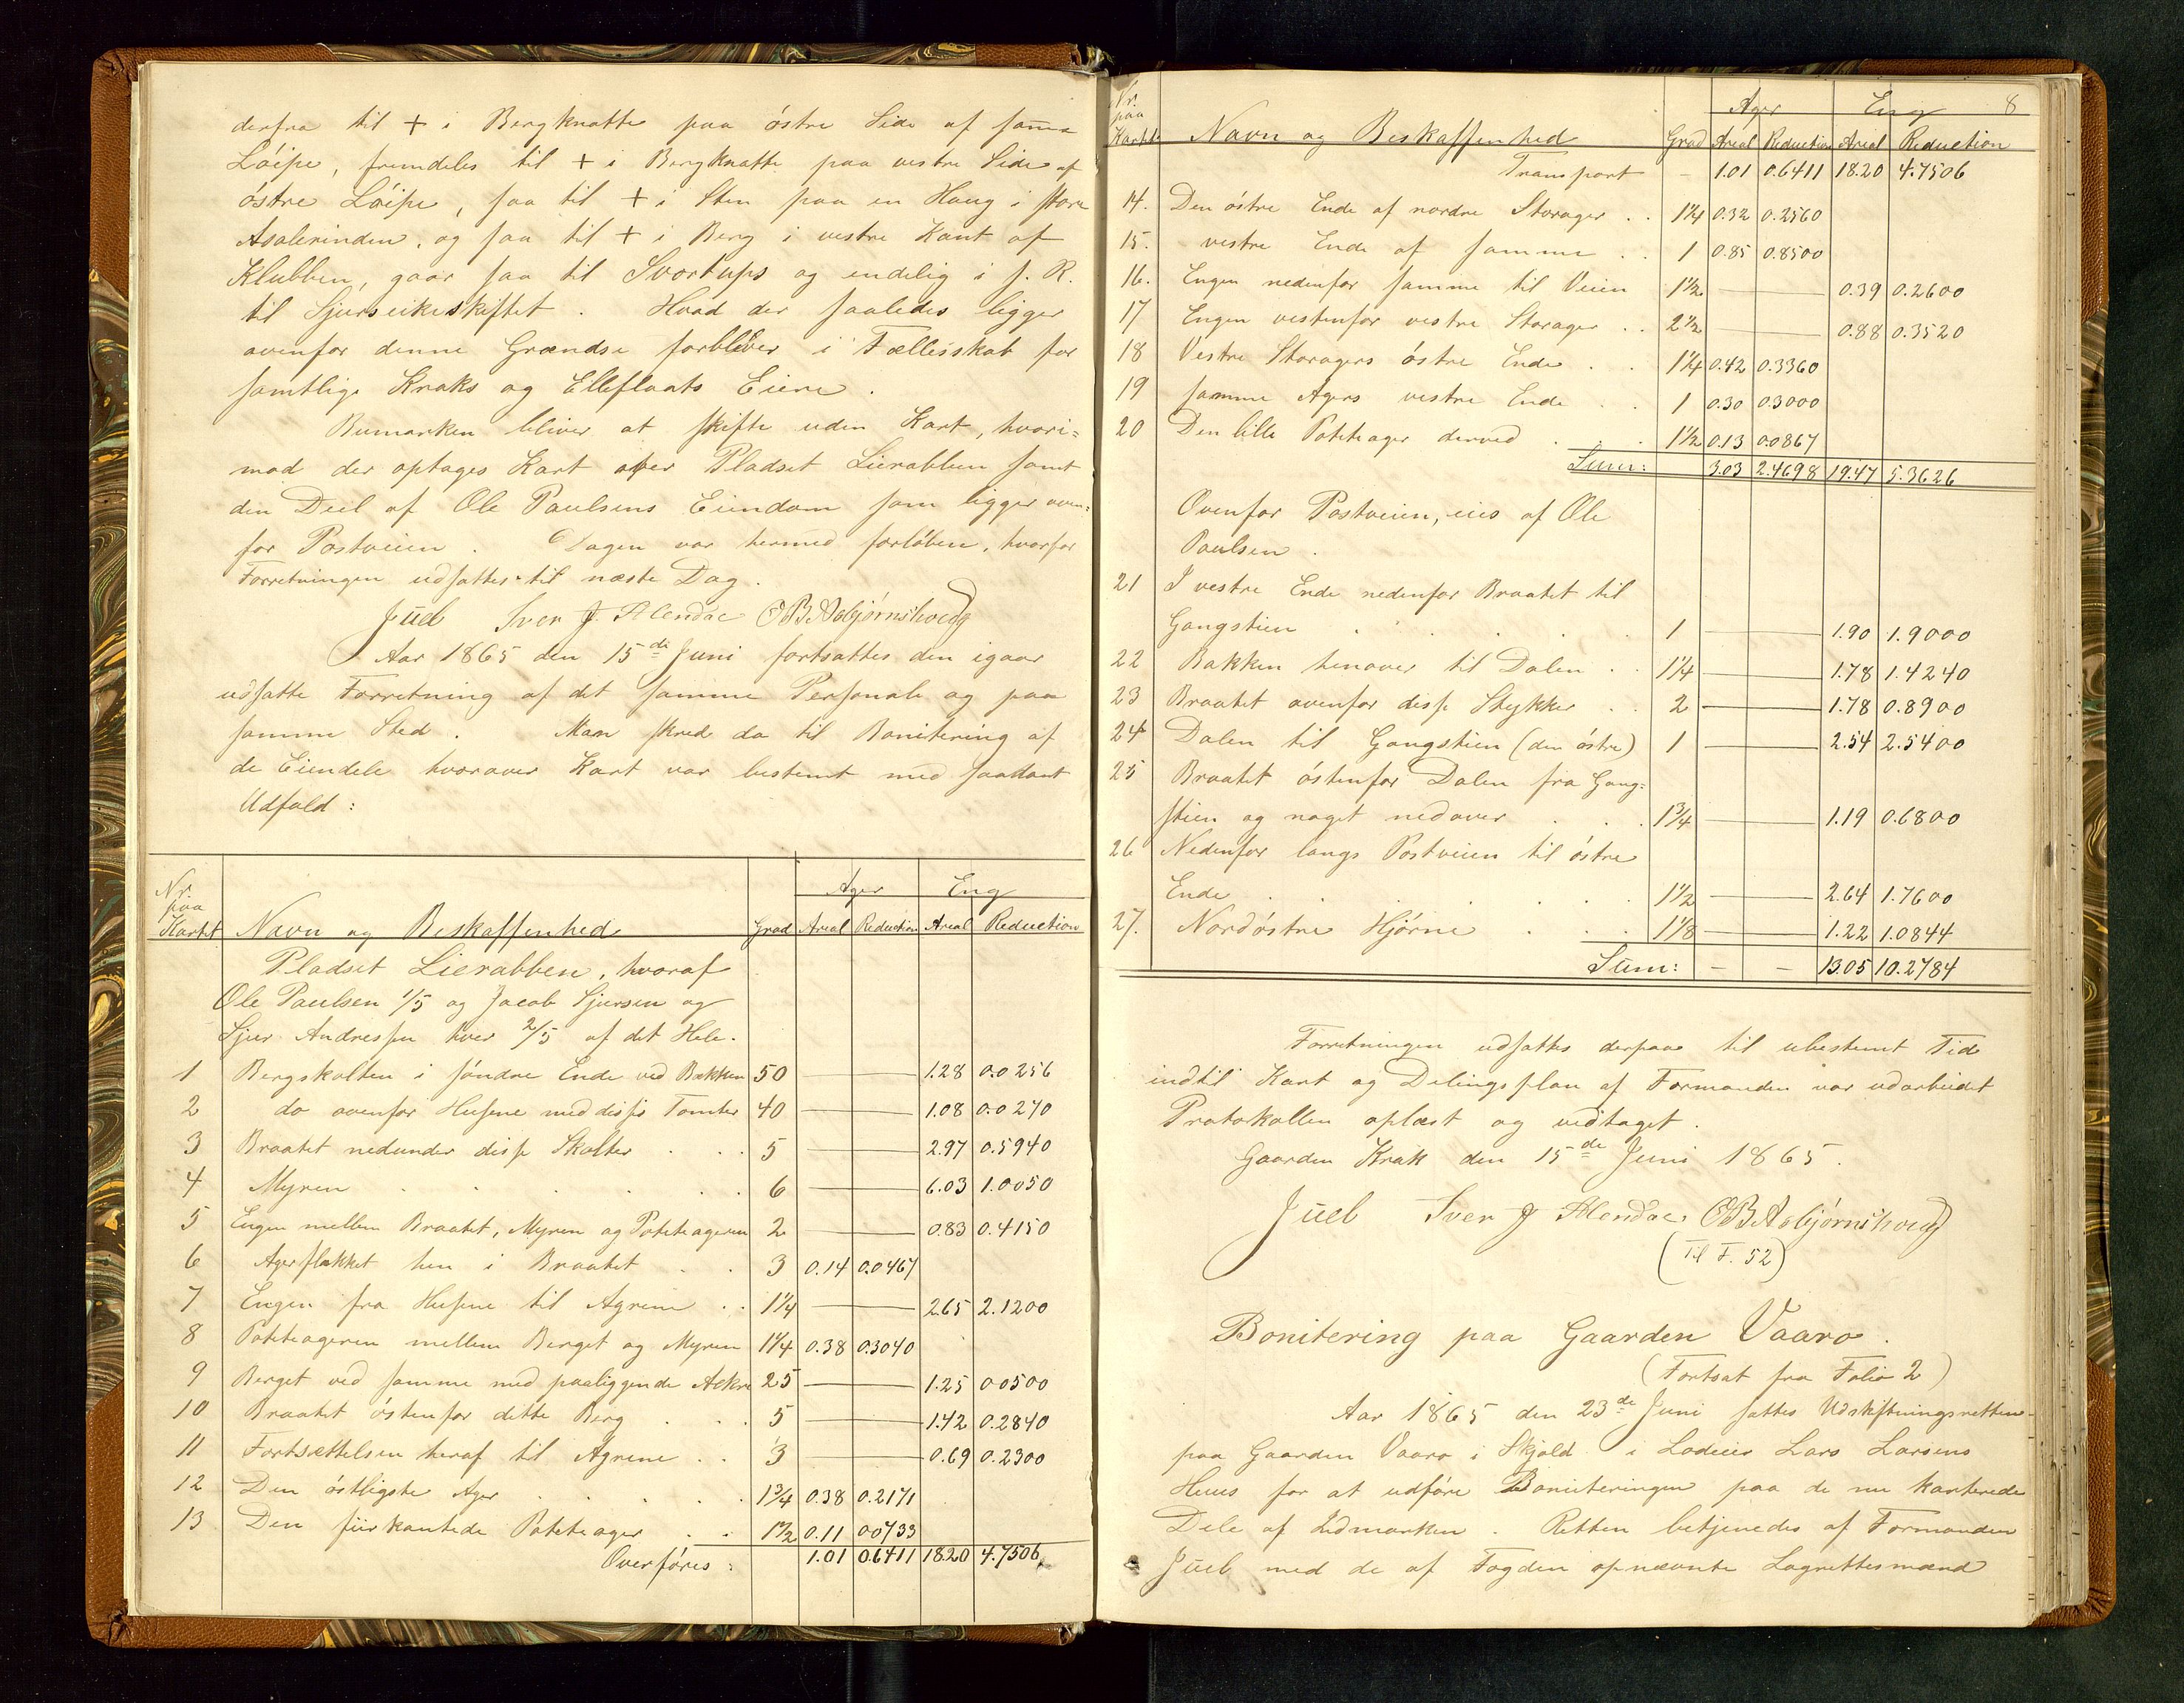 derfra til + i Bergknatte paa östre Side af samme
Löipe, fremdeles til + i Bergknatte paa vestre Side af
östre Löipe, saa til + i Sten paa en Haug i store
Asalerinden, og saa til + i Berg i vestre Kant af
Klubben, gaar saa til Svortups og endelig i s. R.
til Sjurseikeskiftet. Hvad der saaledes ligger
ovenfor denne Grændse forbliver i Fællesskab for
samtlige Kraks og Elleflaats Eiere.
Bumarken bliver at skifte uden Kart, hvori=
mod der optages Kart over Pladset Lierabben samt
den Deel af Ole Paulsens Eiendom som ligger oven=
for Postveien. Dagen var hermed forlöben, hvorfor
Forretningen udsattes til næste Dag.
Juel Sver J. Alendae OBAsbjørnshvedg
Aar 1865 den 15de Juni fortsattes den igaar
udsatte Forretning af det samme Personale og paa
samme Sted. Man skred da til Bonitering af
de Eiendele hvorover Kart var bestemt med saadant
Udfald:
Nr. paa Kartet Navn og Beskaffenhed Grad Ager Areal Reduction Eng Areal Reduction
Pladset Lierabben, hvoraf
Ole Paulsen 1/5 og Jacob Sjursen og
Sjur Andressen hver 2/5 af det Hele.
1 Bergskolten i söndre Ende ved Bakken 50 1.28 0.0256
2 do ovenfor Husene med disses Tomter 40 1.08 0.0270
3 Braatet nedunder disse Skolter 5 2.97 0.5940
4 Myren 6 6.03 1.0050
5 Engen mellem Braatet, Myren og Poteteageren 2 0.83 0.4150
6 Agerflækket hen i Braatet 3 0.14 0.0467
7 Engen fra Husene til Agrene 1¼ 2.65 2.1200
8 Poteteageren mellem Berget og Myren 1¼ 0.38 0.3040
9 Berget ved samme med paaliggende 25 1.25 0.0500
10 Braatet östenfor dette Berg 5 1.42 0.2840
11 Fortsættelsen heraf til Agrene 3 0.69 0.2300
12 Den östligste Ager 1¾ 0.38 0.2171
13 Den fiirkantede Poteteager 1½ 0.11 0.0733
Overföres: 1.01 0.6411 18.20 4.7506
8
Nr. paa Kartet Navn og Beskaffenhed Grad Ager Areal Reduction Eng Areal Reduction
Transport - 1.01 0.6411 18.20 4.7506
14. Den östre Ende af nordre Storager 1¼ 0.32 0.2560
15. vestre Ende af samme 1 0.85 0.8500
16. Engen nedenfor samme til Veien 1½ 0.39 0.2600
17 Engen vestenfor vestre Storager 2½ 0.88 0.3520
18 Vestre Storagers östre Ende 1¼ 0.42 0.3360
19 samme Agers vestre Ende 1 0.30 0.3000
20 Den lille Poteteager derved 1½ 0.13 0.0867
Sum: 3.03 2.4698 19.47 5.3626
Ovenfor Postveien, eies af Ole
Paulsen.
21 I vestre Ende nedenfor Braatet til
Gangstien 1 1.90 1.9000
22 Bakken henover til Dalen 1¼ 1.78 1.4240
23 Braatet ovenfor disse Stykker 2 1.78 0.8900
24 Dalen til Gangstien (den östre) 1 2.54 2.5400
25 Braatet östenfor Dalen fra Gang=
stien og noget nedover 1¾ 1.19 0.6800
26 Nedenfor langs Postveien til östre
Ende 1½ 2.64 1.7600
27. Nordöstre Hjörne 1⅛ 1.22 1.0844
Sum: - - 13.05 10.2784
Forretningen udsattes derpaa til ubestemt Tid
indtil Kart og Delingsplan af Formanden var udarbeidet
Protokollen oplæst og vedtaget.
Gaarden Krak den 15de Juni 1865.
Juel Sver J Alendae OBAsbjørnshvedg
(Til F. 52)
Bonitering paa Gaarden Vaaro.
(Fortsat fra Folio 2)
Aar 1865 den 23de Juni sattes Udskiftningsretten
paa Gaarden Vaaro i Skjold i Lodeier Lars Larsens
Huus for at udföre Boniteringen paa de nu karterede
Dele af Udmarken. Retten betjenedes af Formanden
Juel med de af Fogden opnævnte Lagrettesmænd